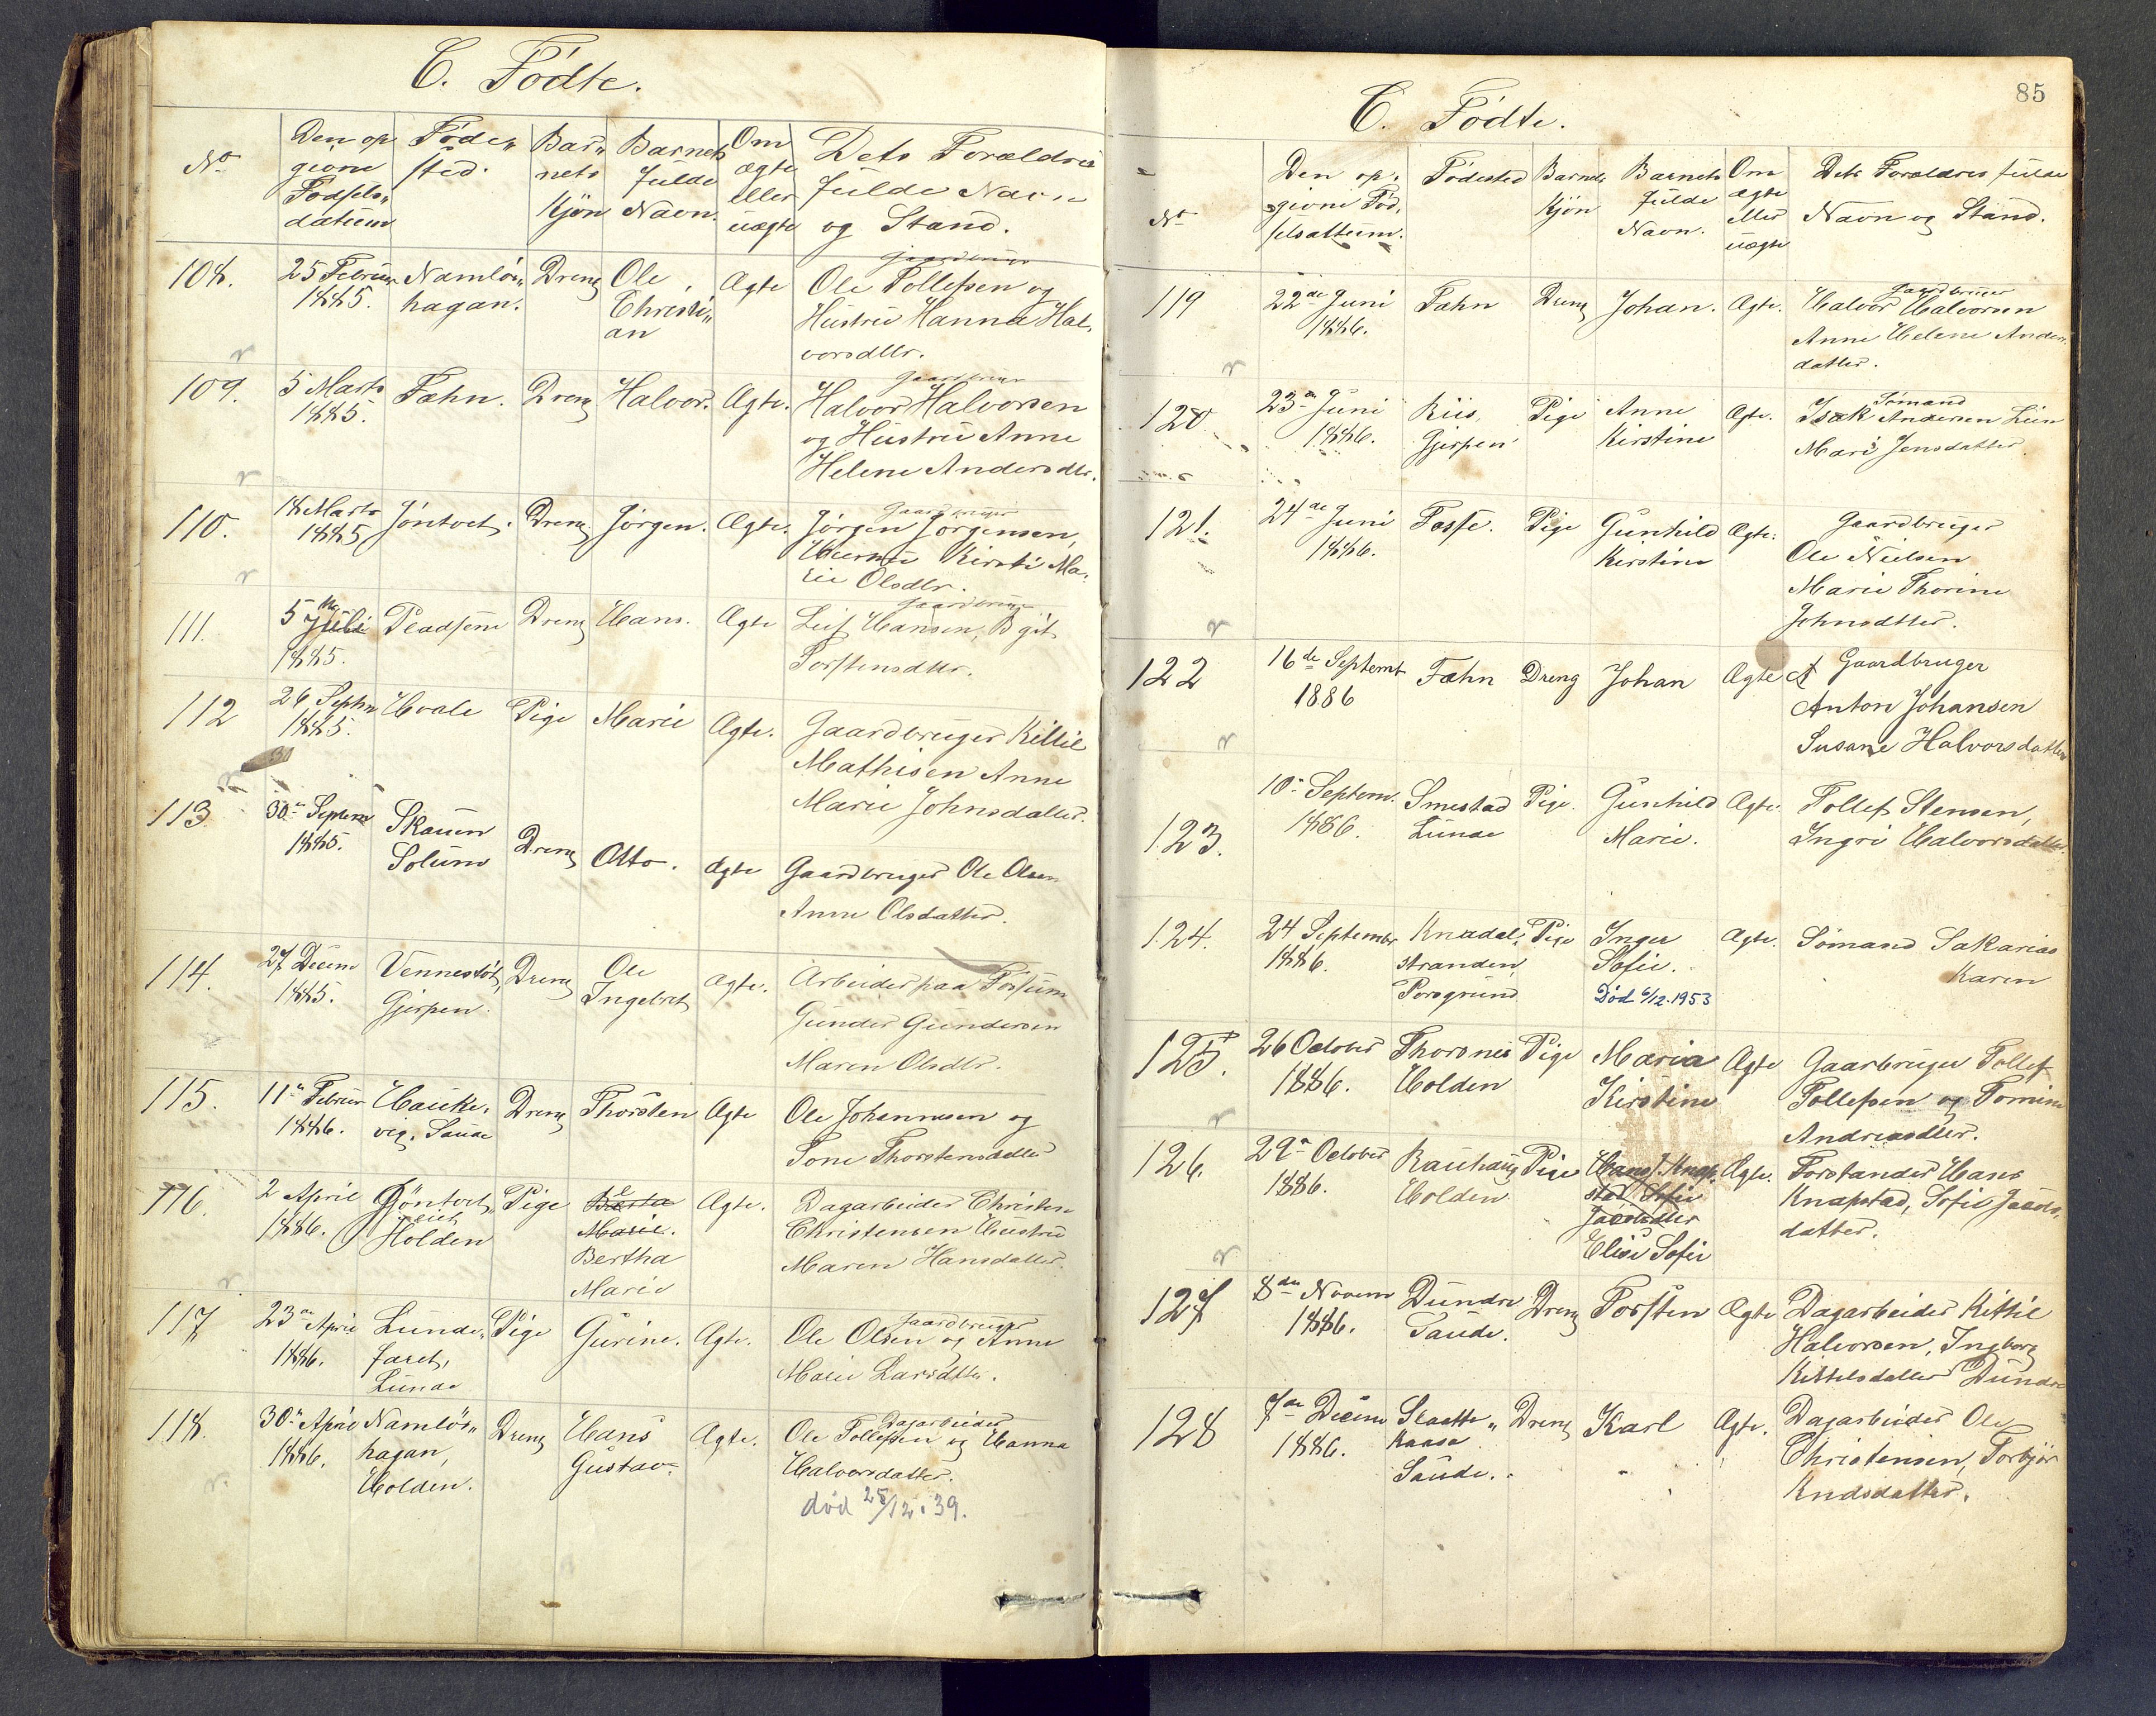 C. Födte.
No
Den op
givne
Födsels„
datum
Föde„
sted.
Bar„
nets
Kjön
Barnets
fulde
Navn.
Om
ægte
eller
uægte
Dets Forældres
fulde Navn
og Stand.
108.
25 Februar
1885.
Namlös„
hagan.
Dreng
Ole
Christi„
an
Ægte
Gaardbruger
Ole Tollefsen og
Hustru Hanna Hal„
vorsdtr.
109.
5 Marts
1885.
Fæhn.
Dreng
Halvor.
Ægte.
Gaardbruger
Halvor Halvorsen
og Hustru Anne
Helene Andersdtr.
110.
18 Marts
1885
Jöntvet.
Dreng.
Jörgen.
Ægte.
Gaardbruger
Jörgen Jörgensen,
Hustru Kirsti Ma„
rie Olsdtr.
111.
5
1885.
Dreng
Hans.
Ægte
Gaardbruger
Leif Hansen, B git
Torstensdtr.
112
26 Septm
1885.
Hvale
Pige
Marie
Ægte.
Gaardbruger Kittil
Mathisen Anne
Marie Johnsdatter.
113.
30te Septem
1885.
Skauen
Solum
Dreng
Otto.
Ægte
Gaardbruger Ole Olsen
Anne Olsdatter.
114.
27 Decem
1885.
Gjerpen.
Dreng
Ole
Ingebret
Ægte.
Arbeider paa Fossum
Gunder Gundersen
Maren Olsdtr.
115.
11te Februar
1886.
Hauke„
veg. Saude
Dreng
Thorsten
Ægte
Ole Johannesen og
Tone Thorstensdatter
116.
2 April
1886.
Jöntvet„
eiet
Holden
Pige
Marie.
Bertha
Marie
Ægte.
Dagarbeider Christen
Christensen Hustru
Maren Hansdatter.
117
23de April
1886.
Lunde„
faret,
Lunde
Pige
Gurine.
Ægte.
Gaardbruger
Ole Olsen og Anne
Marie Larsdtter.
118.
30te April
1886.
Namlös„
hagan,
Holden.
Dreng
Hans
Gustav.
Ægte.
Dagarbeider
Ole Tollefsen og Hanna
Halvorsdatter.
död 25/12.39.
85
C. Födte.
No
Den op„
givne Föd„
selsdatum.
Födested
Barnets
Kjön
Barnets
fulde
Navn.
Om
ægte
eller
uægte
Dets Forældres fulde
Navn og Stand.
119
22de Juni
1886.
Fæhn
Dreng
Johan.
Ægte.
Gaardbruger
Halvor Halvorsen
Anne Helene Anders„
datter.
120
23de Juni
1886.
Riis,
Gjerpen
Pige
Anne
Kirstine
Ægte.
Sömand
Isak Andersen Lien
Mari Jensdatter.
121.
24de Juni
1886.
Fosse.
Pige
Gunhild
Kirstine
Ægte.
Gaardbruger
Ole Nielsen
Marie Thorine
Johnsdtter.
122
16de Septemb
1886
Fæhn
Dreng
Johan
Ægte
Gaardbruger
Anton Johansen
Susane Halvorsdatter
123.
10de Septem.
1886.
Smestad
Lunde
Pige.
Gunhild
Marie.
Ægte.
Tollef Stensen,
Ingri Halvorsdatter.
124.
24 Septembr
1886.
Knadal„
stranden
Porsgrund
Pige
Inger
Sofie.
Död 6/12.1953
Ægte.
Sömand Sakarias
Karen
125.
26 October
1886.
Thorsnes
Holden
Pige
Maria
Kirstine
Ægte
Gaarbruger Tollef
Tollefsen og Tomine
Andreasdtter.
126.
29de October
1886.
Rauhaug
Holden
Pige
Hans J. Knap„
stad Sofie
Jacobdtter
Elise Sofie
Ægte.
Forstander Hans
Knapstad, Sofie Jacobs„
datter.
127
8de Novem
1886.
Dundre
Saude.
Dreng
Torsten
Ægte
Dagarbeider Kittil
Halvorsen, Ingborg
Kittelsdatter Dundre
128
7de Decem
1886.
Slaatte„
kaasa
Saude.
Dreng
Karl
Ægte.
Dagarbeider Ole
Christensen, Torbjör
Knudsdatter.